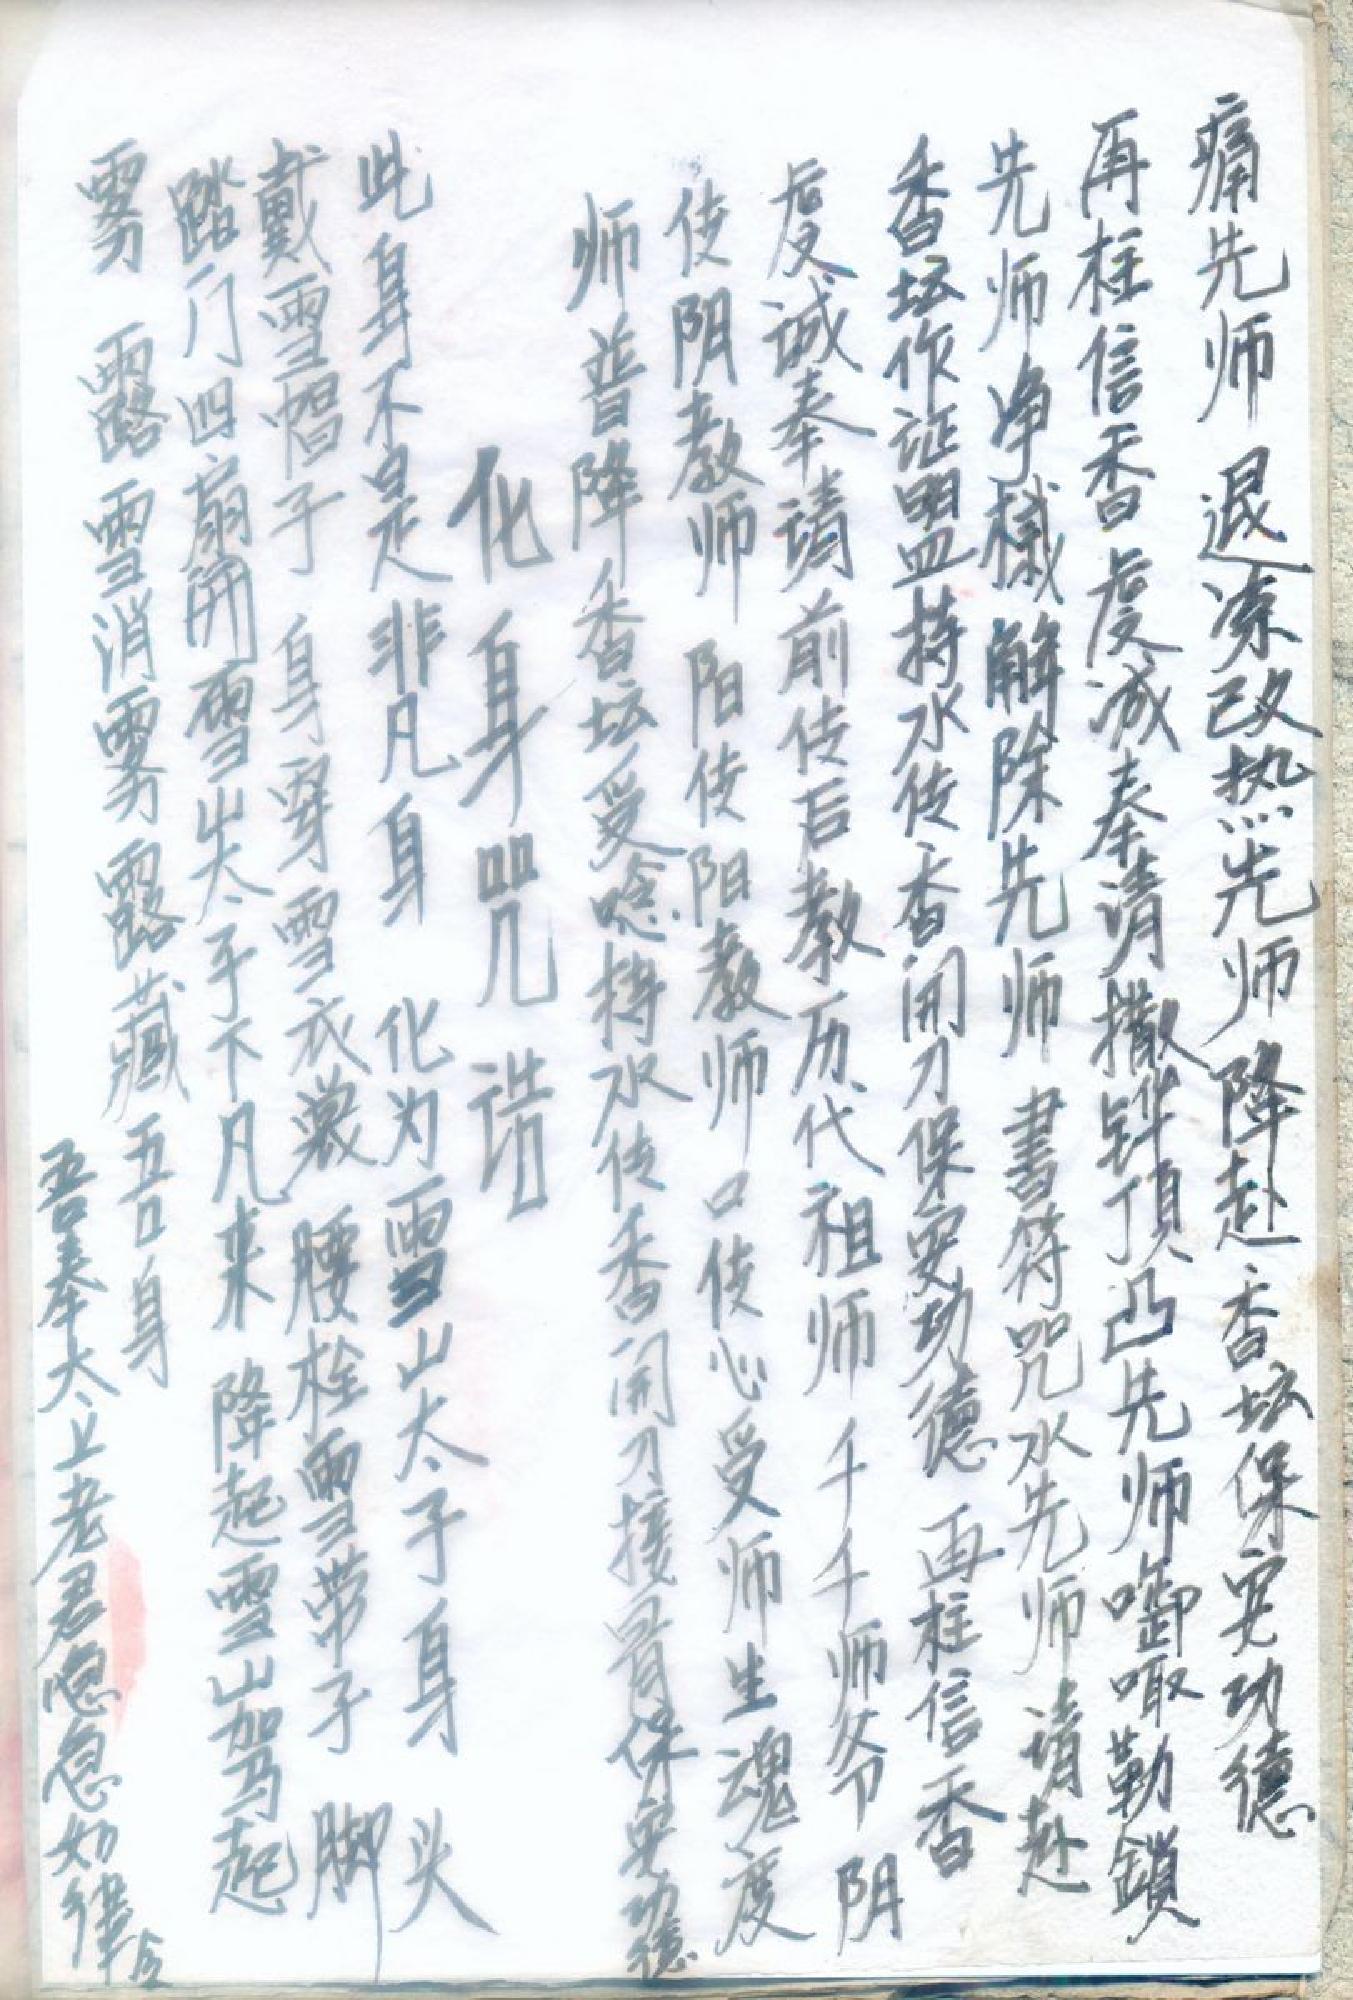 痛先师 退凉改热先师降赴香坛保安功德
再柱信香虔诚奉请撒铧顶凸先师啣嘅勒鎖
先师净槭解除先师 書符咒水先师 请赴
香坛作证盟持水传香開刀保安功德 再柱信香
虔诚奉请前传后教历代祖师 千千师爷 阴
传阴教师 阳传阳教师 口传心受师生魂度
师普降香坛受唸持水传香開刀接骨保安功德
化身咒 诰
此身不是非凡身 化为雪山太子身 头
戴雪帽子 身穿雪衣裳 腰栓雪带子 脚
踏门四扇開雪山太子下凡来 降起雪山驾马起
雾 露雪消雾露藏吾身
吾奉太上老君急急如律令